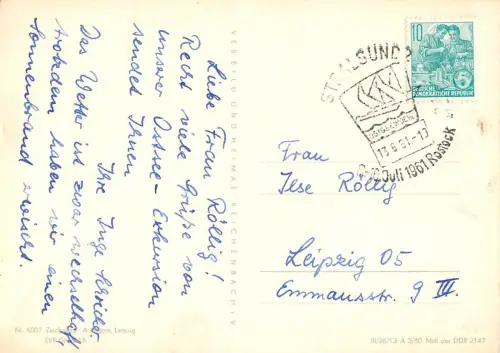 Liebe Frau Röllig!
Recht viele Grüße von
unserer Ostsee-Exkursion
sendet Ihnen
Ihre Inge
Das Wetter ist zwar wechselhaft
trotzdem haben wir einen
Sonnenbrand erwischt.
VEB BILD UND HEIMAT REICHENBACH i. V
STRALSUND
OSTSEEWOCHE
13.6.61-17
Juli 1961 Rostock
10
DEUTSCHE
DEMOKRATISCHE REPUBLIK
Frau
Ilse Röllig
Leipzig O5
Emmausstr. 9 III.
III/26/13 A 3/60 Mdl der DDR 2147